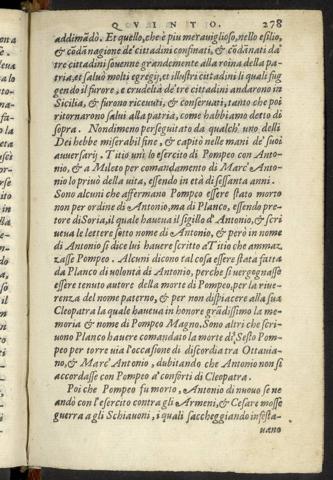 QVINTO. 278
addimãdò. Et quello, che è piu meraviglioso, nello esilio,
& cõdãnagione de' cittadini confinati, & cõdãnati da'
tre cittadini souenne grandemente alla roina della pa-
tria, et saluò molti egregij, et illustri cittadini li quali fug
gendo il furore, e crudeltà de' tre cittadini andarono in
Sicilia, & furono riceuuti, & conseruati, tanto che poi
ritornarono salui alla patria, come habbiamo detto di
sopra. Nondimeno perseguitato da qualch' uno delli
Dei hebbe miserabil fine, & capitò nelle mani de' suoi
auuersarij. Titio unì lo esercito di Pompeo con Anto-
nio, & a Mileto per comandamento di Marc' Anto-
nio lo priuò della uita, essendo in età di sessanta anni.
Sono alcuni che affermano Pompeo essere stato morto
non per ordine di Antonio, ma di Planco, essendo pre-
tore di Soria, il quale haueua il sigillo d' Antonio, & scri
ueua le lettere sotto nome di Antonio, & però in nome
di Antonio si dice lui hauere scritto a Titio che ammaz
zasse Pompeo. Alcuni dicono tal cosa essere stata fatta
da Planco di uolontà di Antonio, perche si uergognasse
essere tenuto autore della morte di Pompeo, per la riue
renza del nome paterno, & per non dispiacere alla sua
Cleopatra la quale haueua in honore grãdissimo la me-
moria & nome di Pompeo Magno. Sono altri che scri-
uono Planco hauere comandato la morte di Sesto Pom-
peo per torre uia l'occasione di discordia tra Ottauia-
no, & Marc' Antonio, dubitando che Antonio non si
accordasse con Pompeo a' conforti di Cleopatra.
Poi che Pompeo fu morto, Antonio di nuouo se ne
andò con l'esercito contra gli Armeni, & Cesare mosse
guerra a gli Schiauoni, i quali saccheggiando infesta-
uano